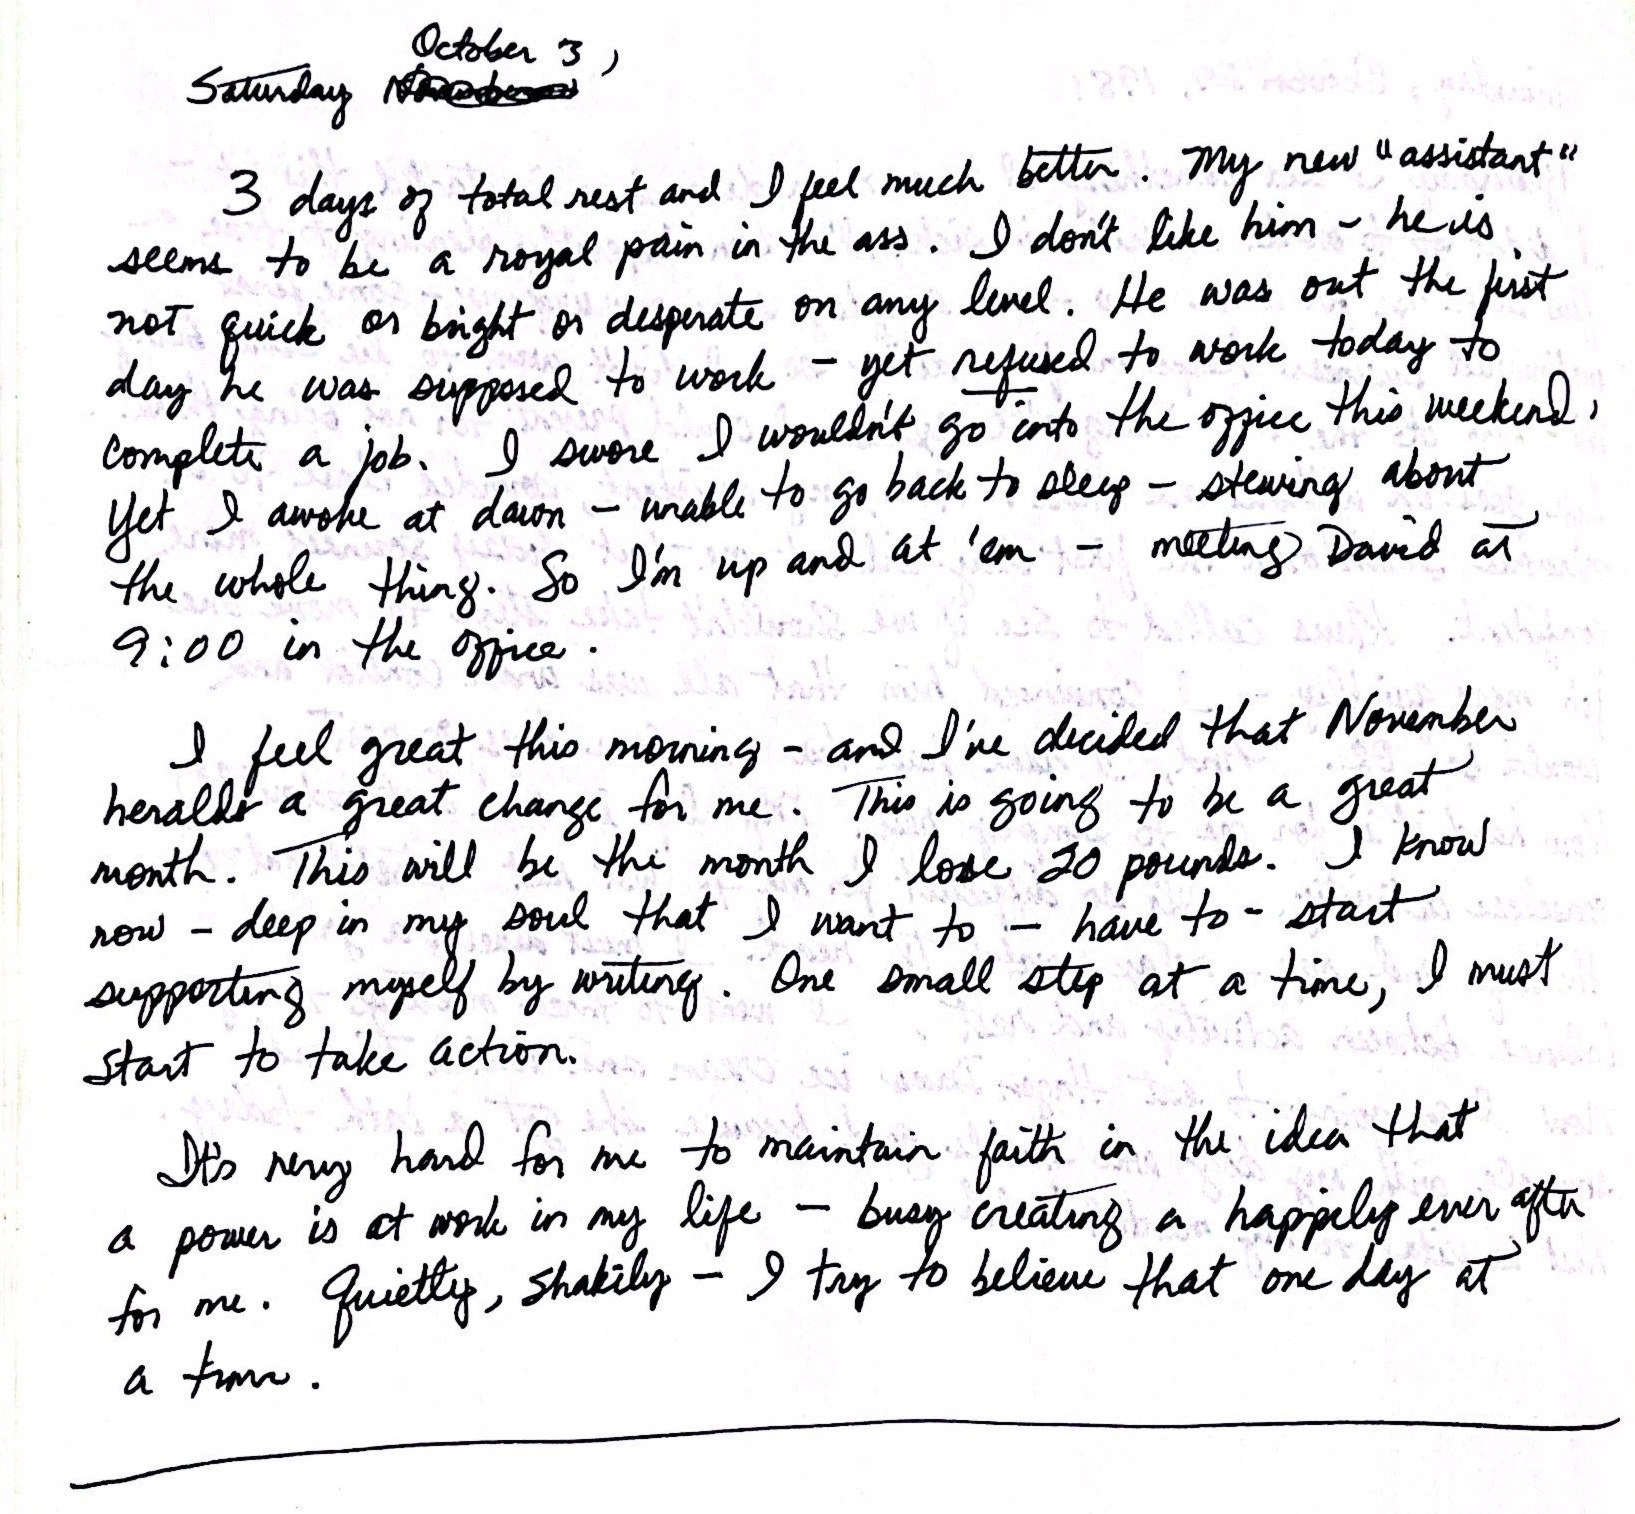 October 3,
Saturday
3 days of total rest and I feel much better. My new "assistant"
seems to be a royal pain in the ass. I don't like him - he is
not quick or bright or desperate on any level. He was out the first
day he was supposed to work - yet refused to work today to
complete a job. I swore I wouldn't go into the office this weekend,
Yet I awoke at dawn - unable to go back to sleep - stewing about
the whole thing. So I'm up and at 'em - meeting David at
9:00 in the office.
I feel great this morning - and I've decided that November
heralds a great change for me. This is going to be a great
month. This will be the month I lose 20 pounds. I know
now - deep in my soul that I want to - have to - start
supporting myself by writing. One small step at a time, I must
start to take action.
It's very hard for me to maintain faith in the idea that
a power is at work in my life - busy creating a happily ever after
for me. Quietly, shakily - I try to believe that one day at
a time.